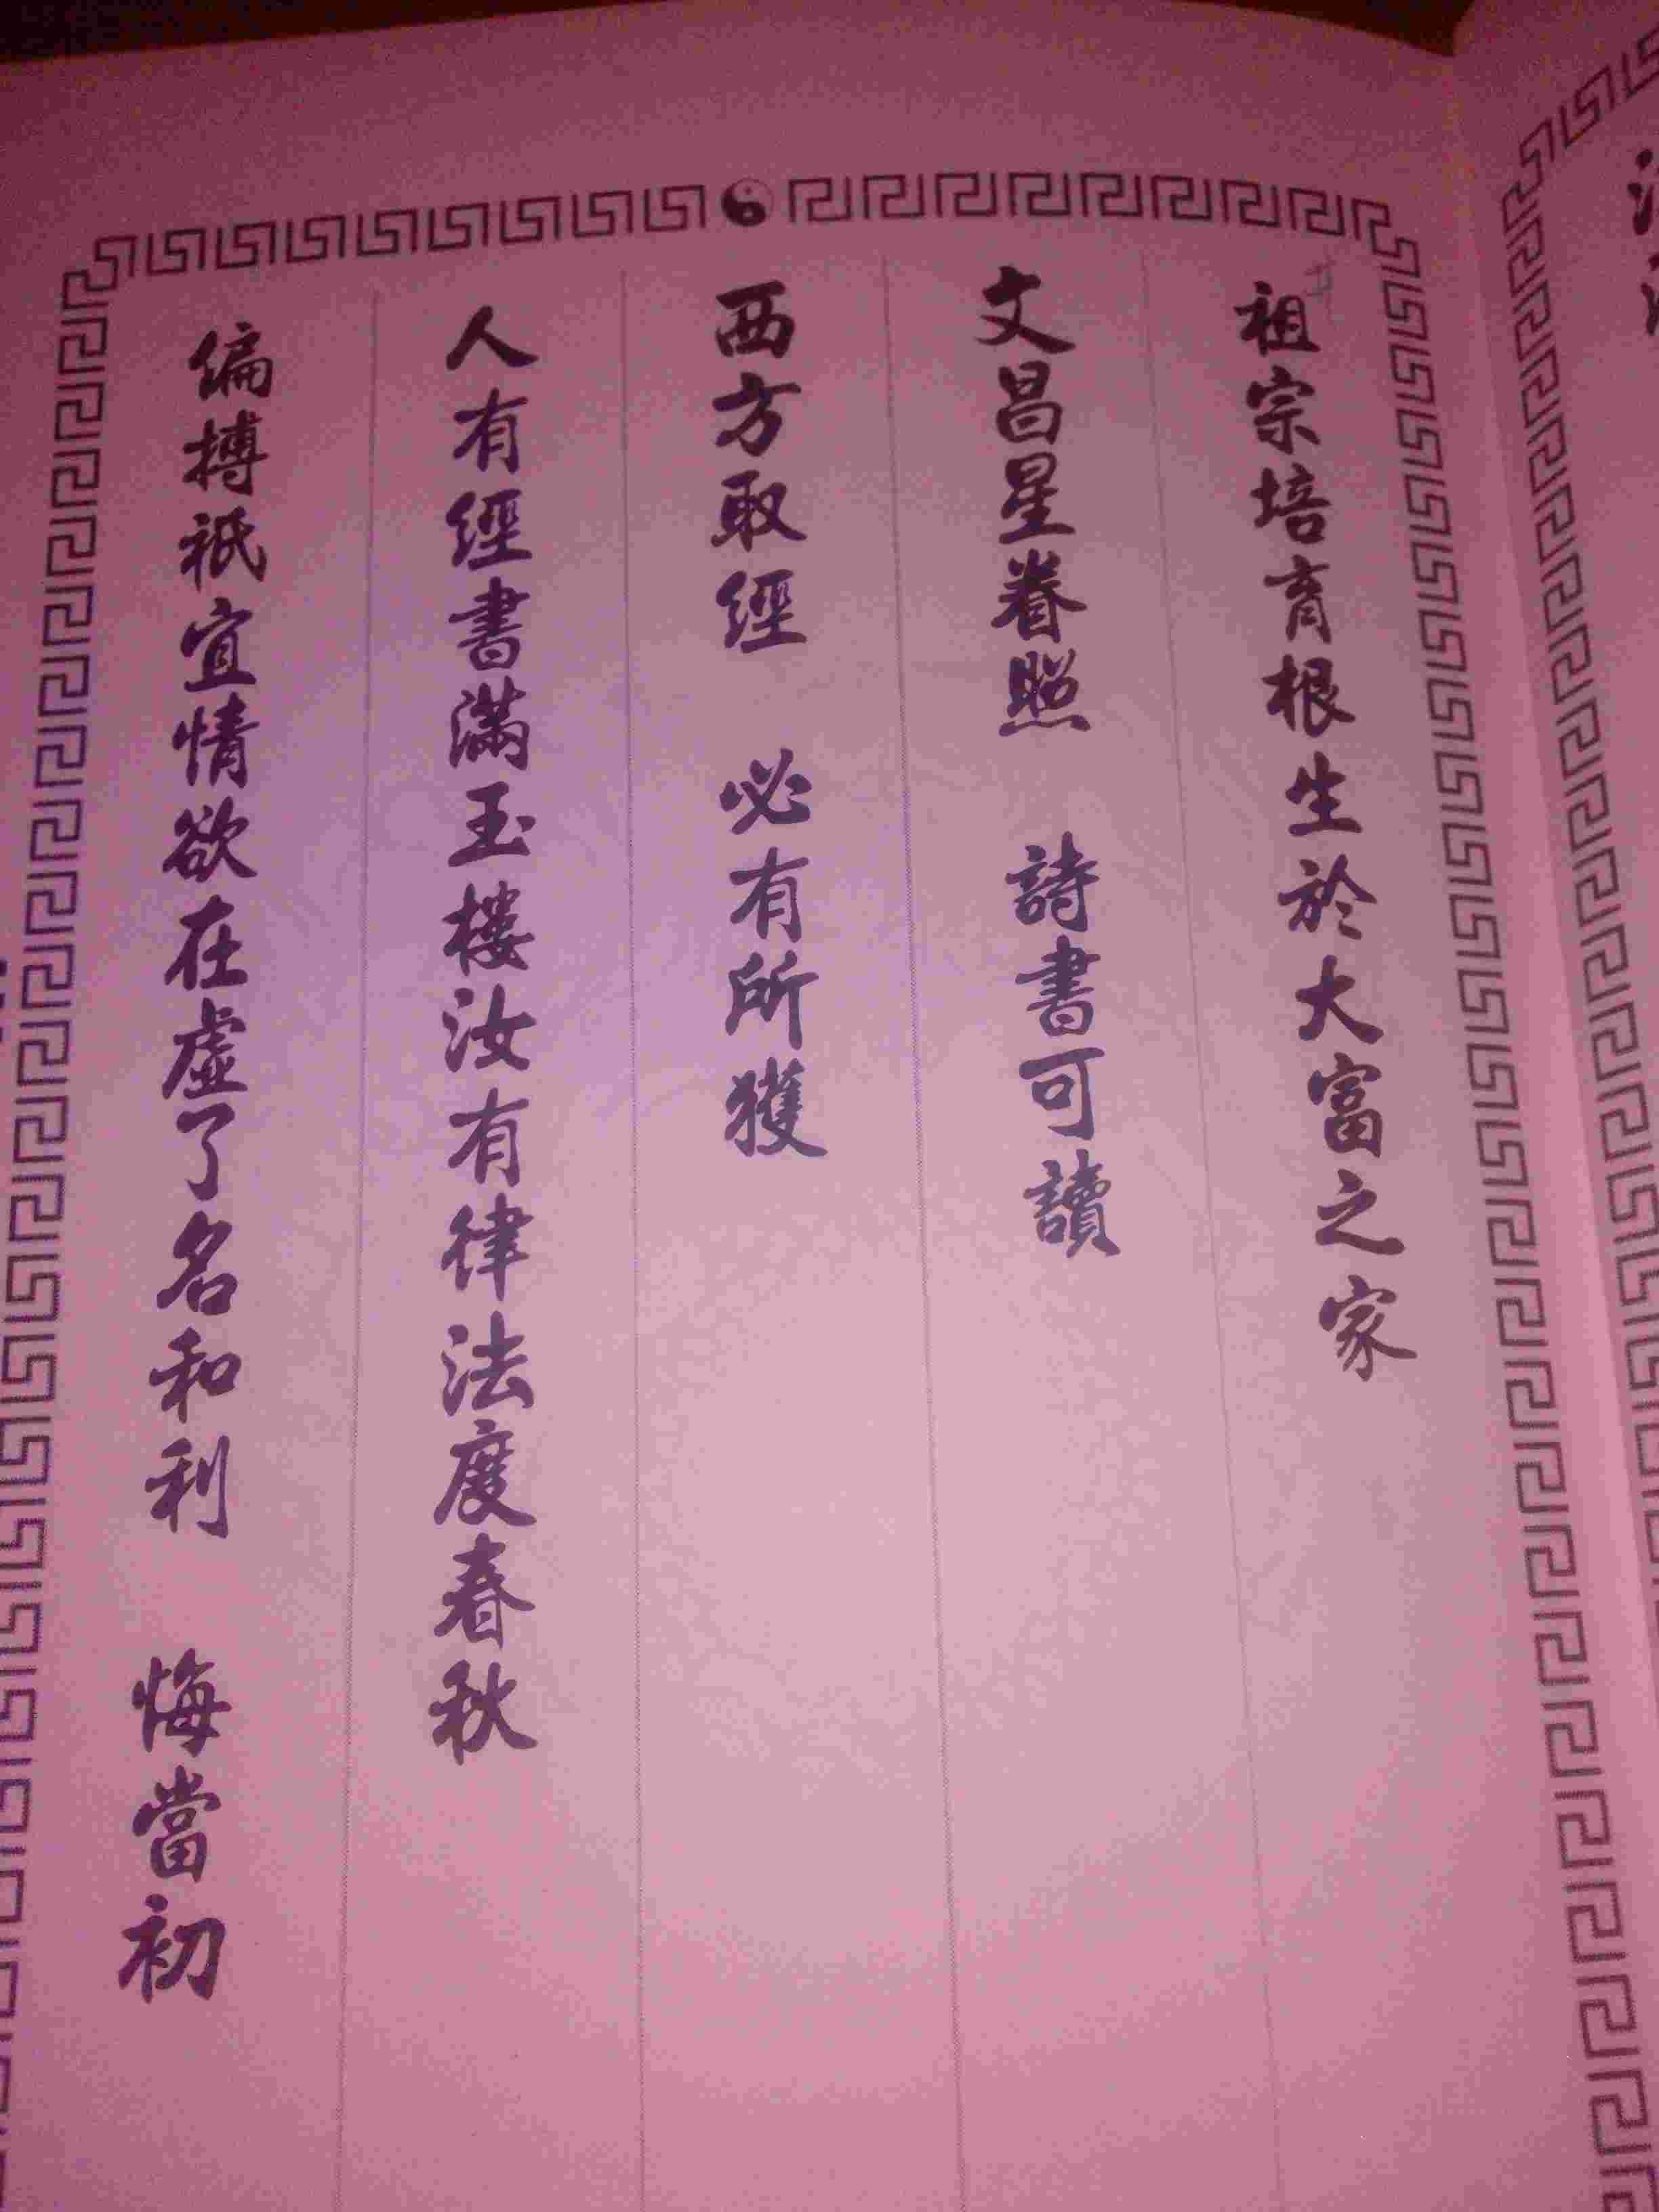 祖宗培育根生於大富之家
文昌星眷照　詩書可讀
西方取經　必有所獲
人有經書滿玉樓汝有律法度春秋
偏搏祇宜情欲在虛了名和利　悔當初